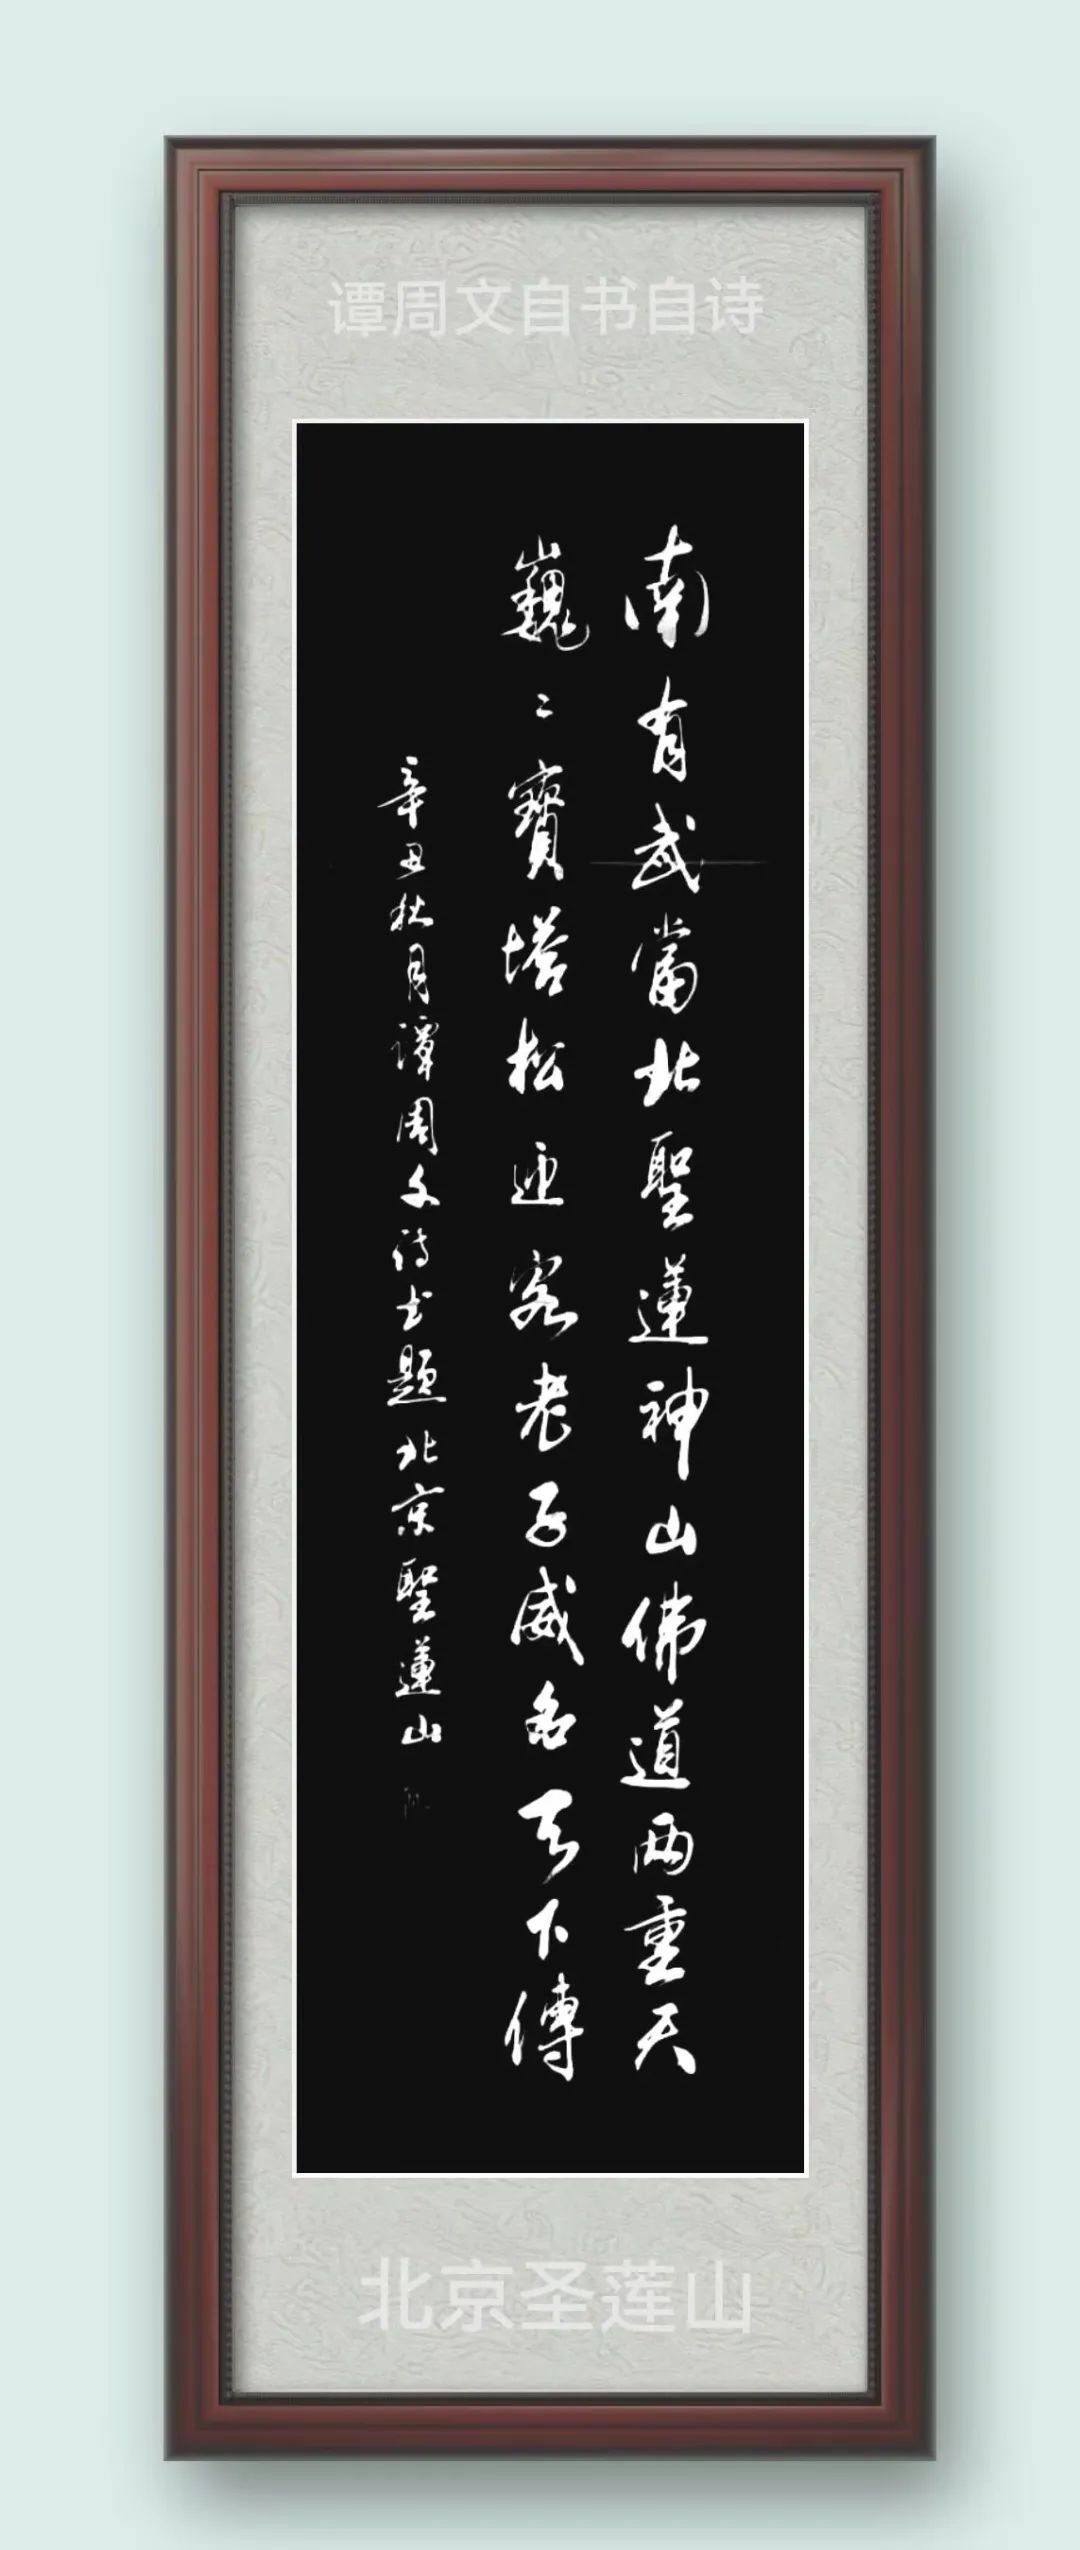 谭周文自书自诗
南有武當北聖蓮神山佛道两重天
巍〻寶塔松迎客老子威名天下傳
辛丑秋月谭周文诗书题北京聖蓮山
北京圣莲山